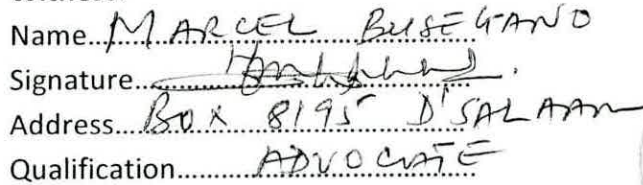 Name...MARCEL BUSEGANO
Signature...
Address...BOX 8195 D'SALAAM
Qualification...ADVOCATE